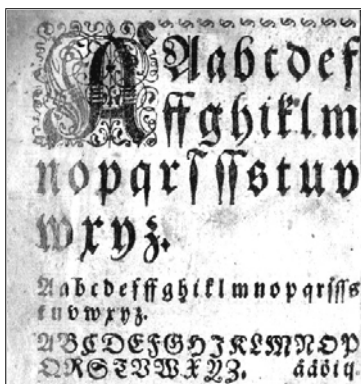 A Aabcdef
ffghiklm
nopqrſſſstuv
wxyz.
Aabcdefffghiklmnopqrſſſs
tuvwxyz.
ABCDEFGHJKLMNOP
QRSTUVWXYZ.